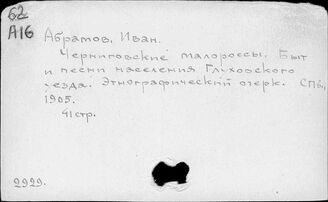 62
А16
Абрамов, Иван.
Черниговские малороссы. Быт
и песни населения Глуховского
уезда. Этнографический очерк. СПб.,
1905.
41 стр.
2929.